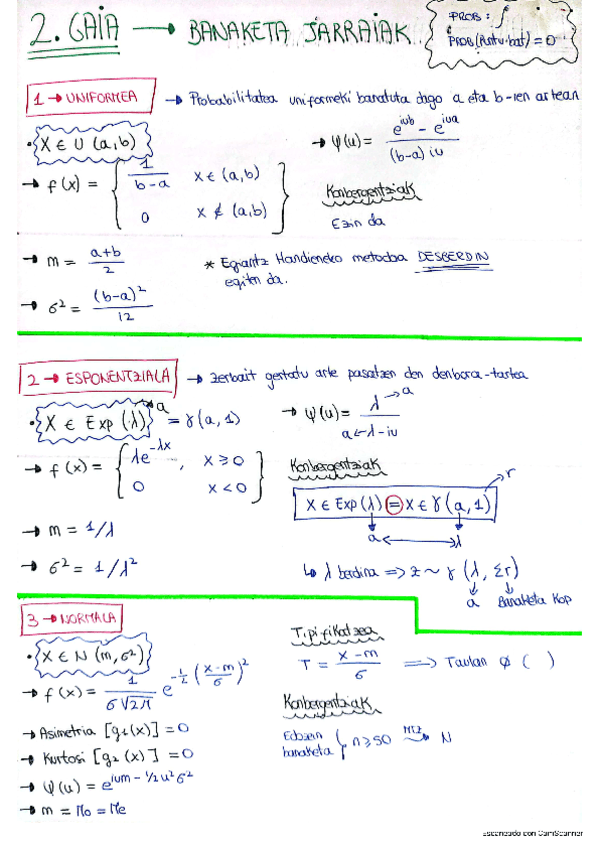 2. GAIA → BANAKETA JARRAIAK
PROB: ∫
PROB(Puntu bat) = 0
1 → UNIFORMEA → Probabilitatea uniformeki banatuta dago a eta b-ren artean
· X ∈ U (a,b)
→ f(x) = { 1/(b-a) x ∈ (a,b)
0 x ∉ (a,b) }
→ Ψ(u) = (e^{iub} - e^{iua}) / ((b-a) iu)
Konbergentziak
Ezin da
→ m = (a+b)/2
* Egiantz Handieneko metodoa DESBERDIN
egiten da.
→ σ² = (b-a)²/12
2 → ESPONENTZIALA → Zerbait gertatu arte pasatzen den denbora-tartea
· X ∈ Exp (λ) → a = γ(a, 1)
→ Ψ(u) = λ → a / a ← λ - iu
→ f(x) = { λe^{-λx}, x ≥ 0
0 x < 0 }
Konbergentziak
X ∈ Exp(λ) = X ∈ γ(a, 1) → r
a ↔ λ
→ m = 1/λ
→ σ² = 1/λ²
↳ λ berdina => z ~ γ (λ, Σr)
a Banaketa Kop
3 → NORMALA
· X ∈ N (m, σ²)
→ f(x) = 1/(σ√2π) e^{-1/2 ((x-m)/σ)²}
→ Asimetria [g₁(x)] = 0
→ Kurtosi [g₂(x)] = 0
→ Ψ(u) = e^{ium - 1/2 u²σ²}
→ m = Mo = Me
Tipifikatzea
T = (x-m)/σ => Taulan Ø ( )
Konbergentziak
Edozein
banaketa { n ≥ 50 → N
Escaneado con CamScanner